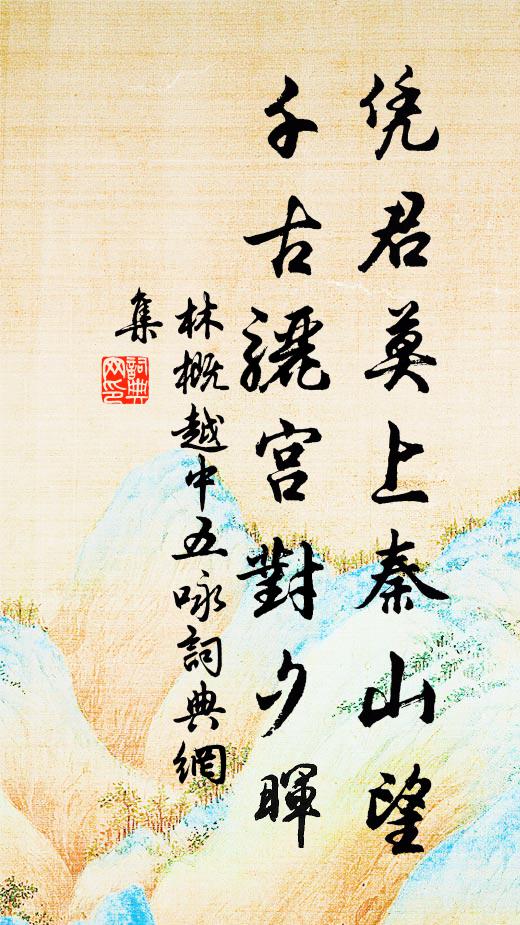 凭君莫上秦山望
千古骊宫對夕暉
林概越中五咏詞典網
集
詞典
网印